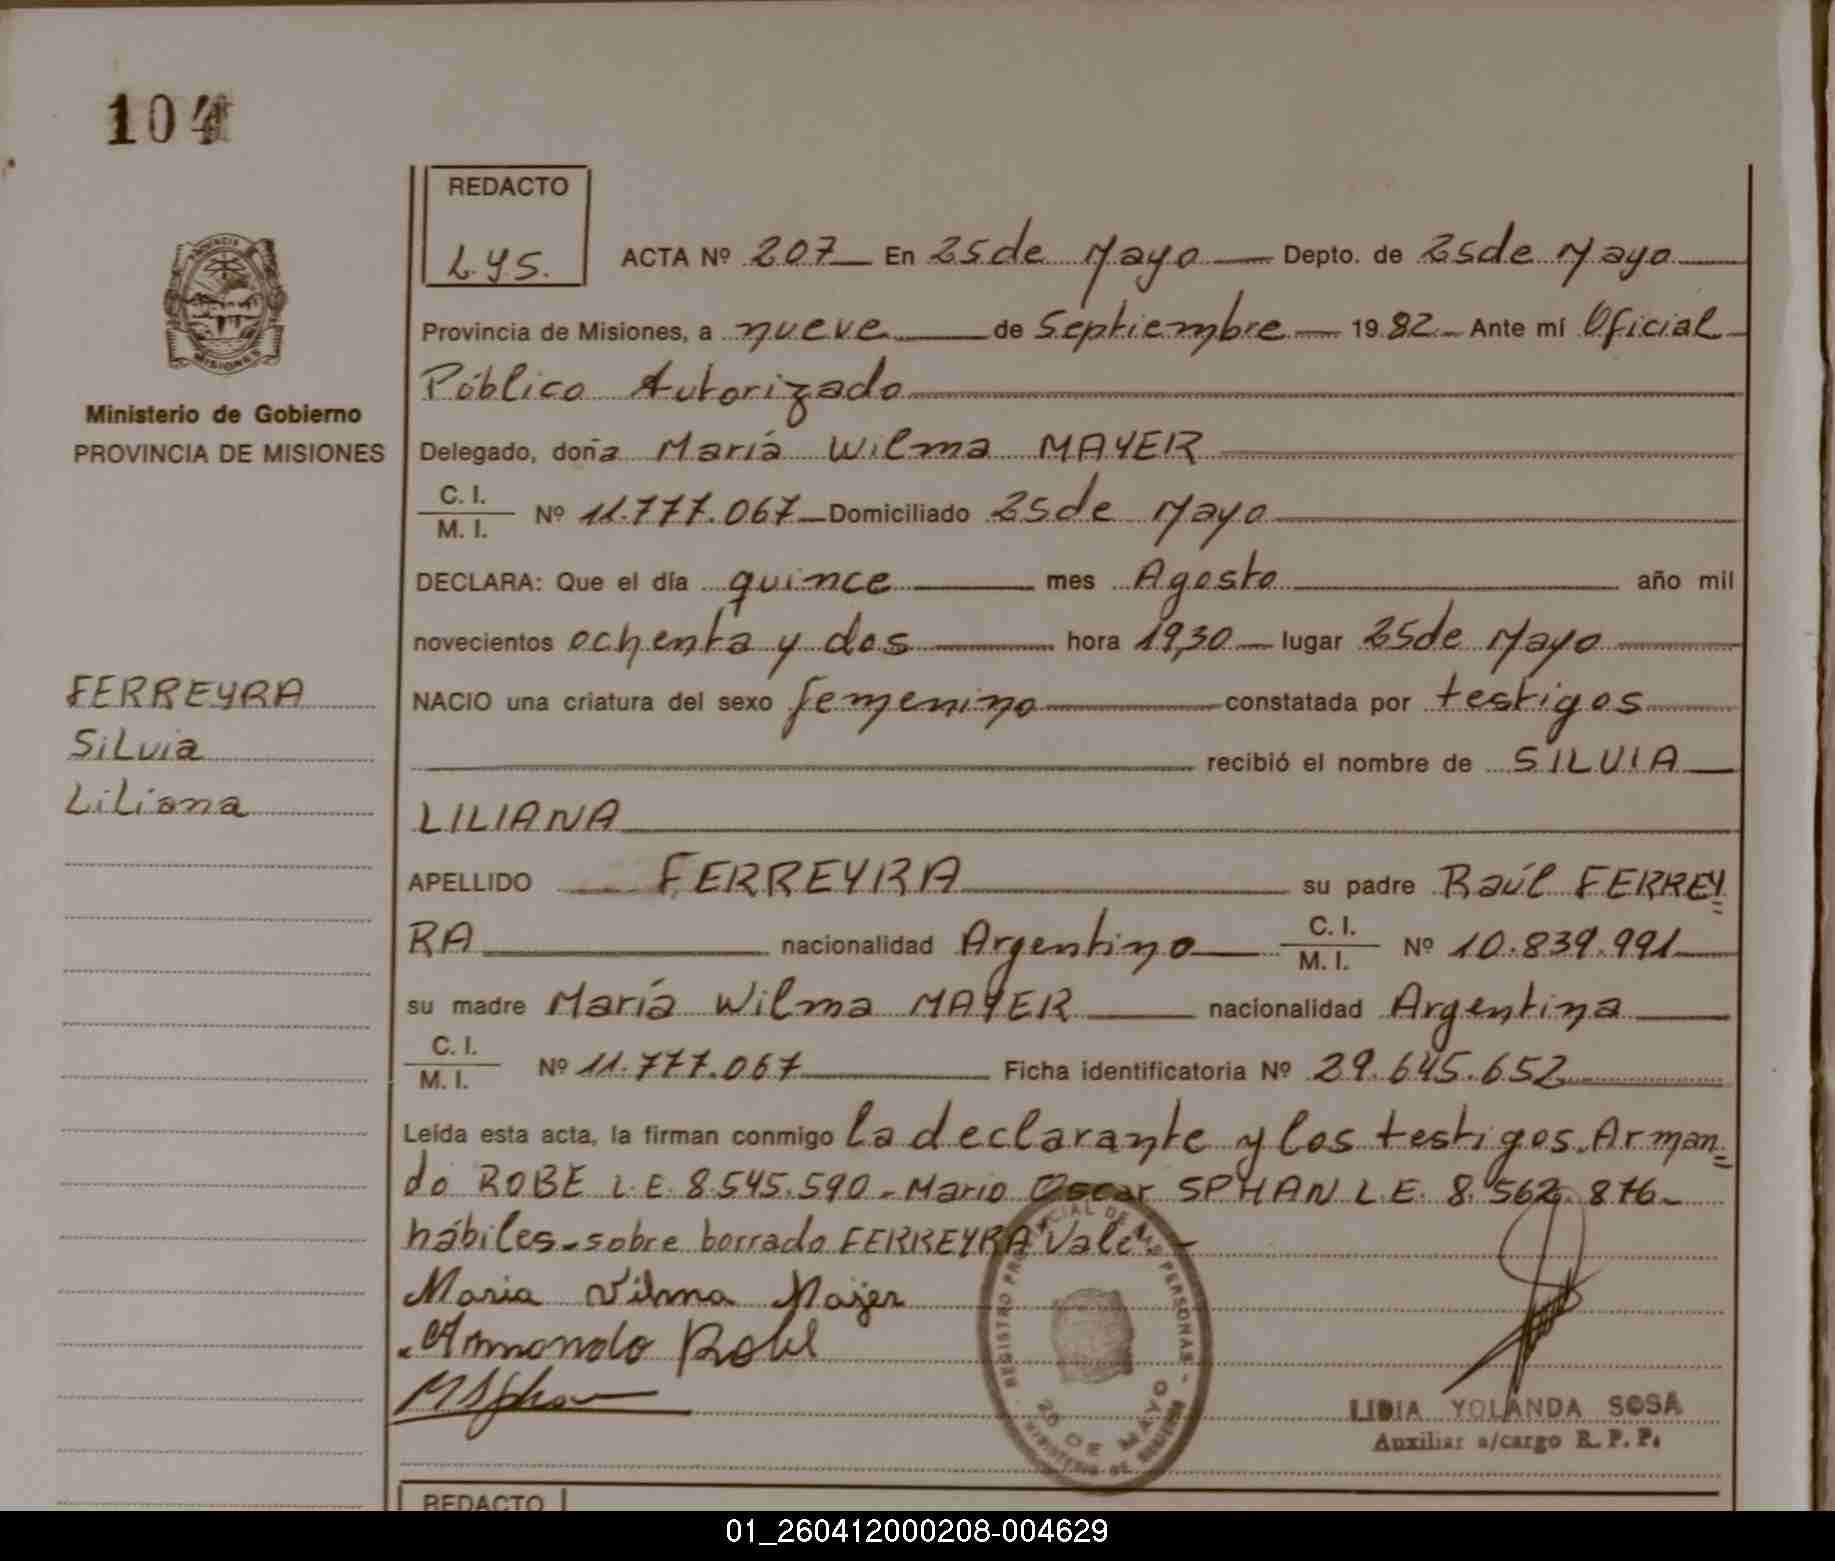 104
REDACTO
L.Y.S.
ACTA Nº 207 En 25 de Mayo Depto. de 25 de Mayo
Provincia de Misiones, a nueve de Septiembre 1982 Ante mí Oficial
Público Autorizado
Ministerio de Gobierno
PROVINCIA DE MISIONES
Delegado, doña María Wilma MAYER
C. I.
M. I. Nº 11.777.067 Domiciliado 25 de Mayo
DECLARA: Que el día quince mes Agosto año mil
novecientos ochenta y dos hora 19,30 lugar 25 de Mayo
FERREYRA
Silvia
Liliana
NACIO una criatura del sexo femenino constatada por testigos
recibió el nombre de SILVIA
LILIANA
APELLIDO FERREYRA su padre Raúl FERREY
RA nacionalidad Argentino C. I. M. I. Nº 10.839.991
su madre María Wilma MAYER nacionalidad Argentina
C. I.
M. I. Nº 11.777.067 Ficha identificatoria Nº 29.645.652
Leída esta acta, la firman conmigo la declarante y los testigos Arman=
do ROBE L.E. 8.545.590 - Mario Oscar SPHAN L.E. 8.562.876 -
hábiles - sobre borrado FERREYRA Vale -
Maria Vilma Majer
Armando Robe
REGISTRO PROVINCIAL DE LAS PERSONAS
25 DE MAYO
MINISTERIO DE GOBIERNO
LIDIA YOLANDA SOSA
Auxiliar a/cargo R. P. P.
REDACTO
01_260412000208-004629